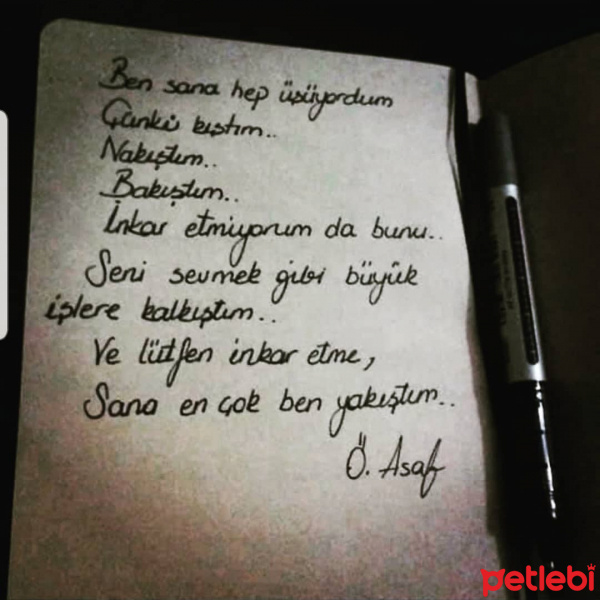 Ben sana hep üşüyordum
Çünkü kıştım..
Nakıştım..
Bakıştım..
İnkar etmiyorum da bunu..
Seni sevmek gibi büyük
işlere kalkıştım..
Ve lütfen inkar etme,
Sana en çok ben yakıştım..
Ö. Asaf
petlebi